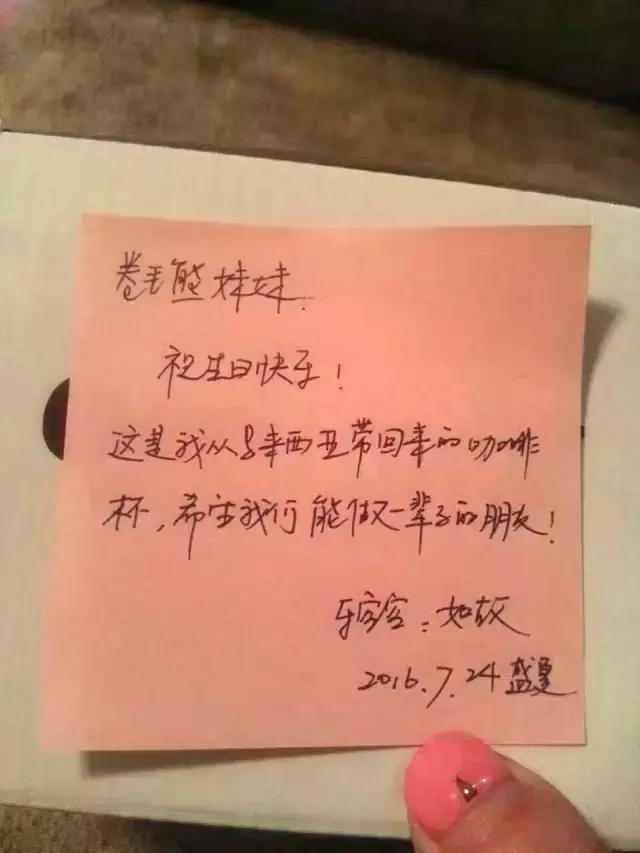 卷毛熊妹妹.
祝生日快乐!
这是我从马来西亚带回来的咖啡
杯,希望我们能做一辈子的朋友!
乐宝宝:如故
2016.7.24盛夏